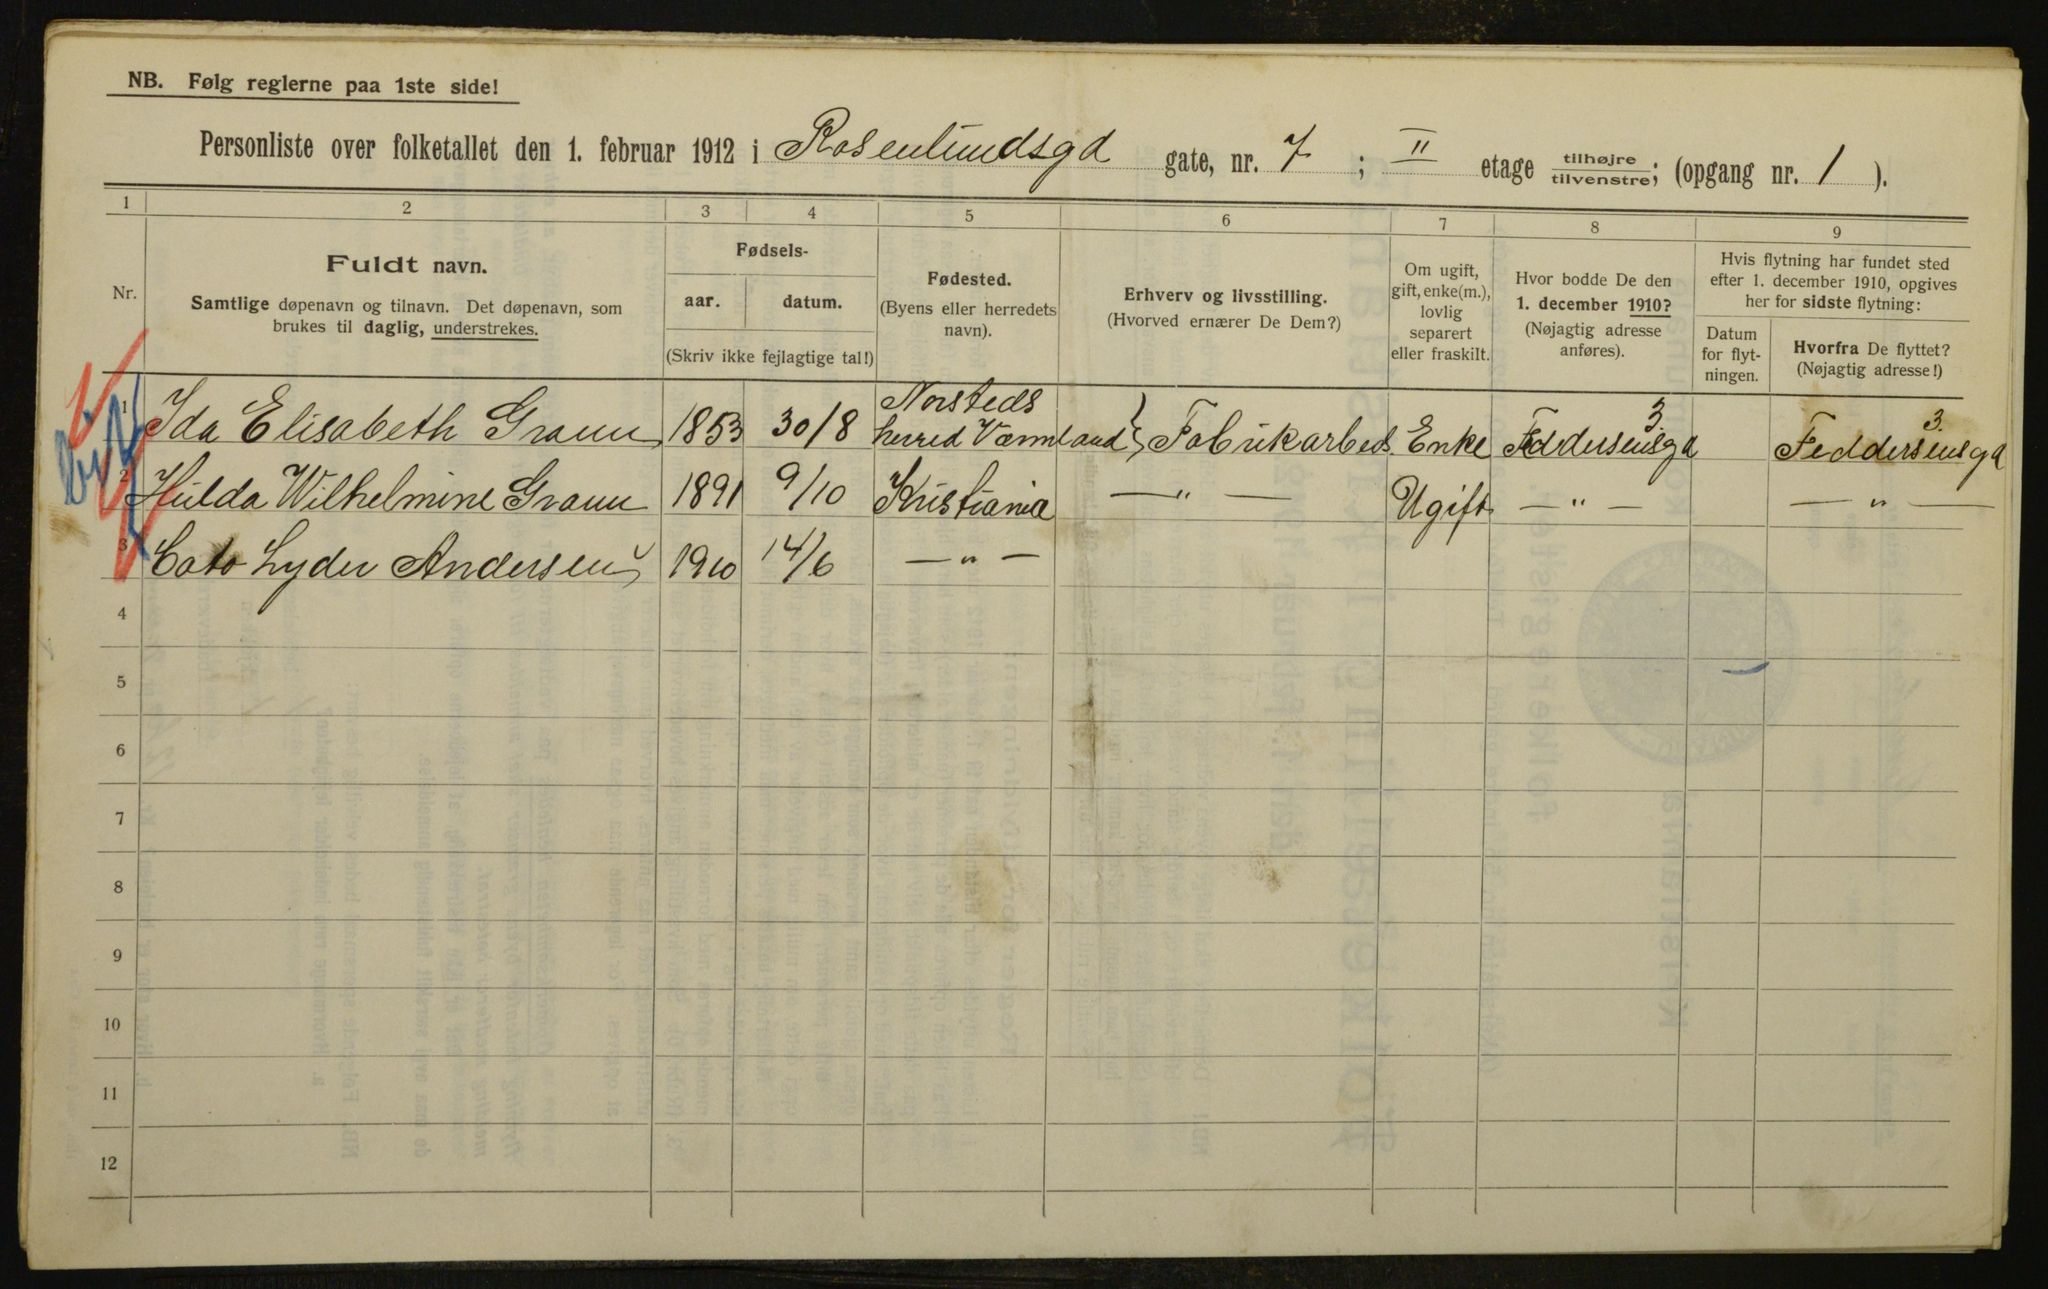 NB. Følg reglerne paa 1ste side!
Personliste over folketallet den 1. februar 1912 i Rosenlundsgd gate, nr. 7 ; II etage tilhøjre tilvenstre; (opgang nr. 1 ).
1 2 3 4 5 6 7 8 9
Nr.
Fuldt navn.
Samtlige døpenavn og tilnavn. Det døpenavn, som
brukes til daglig, understrekes.
Fødsels-
aar. datum.
(Skriv ikke fejlagtige tal!)
Fødested.
(Byens eller herredets
navn).
Erhverv og livsstilling.
(Hvorved ernærer De Dem?)
Om ugift,
gift, enke(m.),
lovlig
separert
eller fraskilt.
Hvor bodde De den
1. december 1910?
(Nøjagtig adresse
anføres).
Hvis flytning har fundet sted
efter 1. december 1910, opgives
her for sidste flytning:
Datum
for flyt-
ningen.
Hvorfra De flyttet?
(Nøjagtig adresse!)
1 Ida Elisabeth Grann 1853 30/8 Norsteds herred Värmland } Fabrikarbeds. Enke Feddersensgd 3. Feddersensgd 3.
2 Hulda Wilhelmine Grann 1891 9/10 Kristiania — " — Ugift — " — — " —
3 Cato Lyder Andersen 1910 14/6 — " —
4
5
6
7
8
9
10
11
12